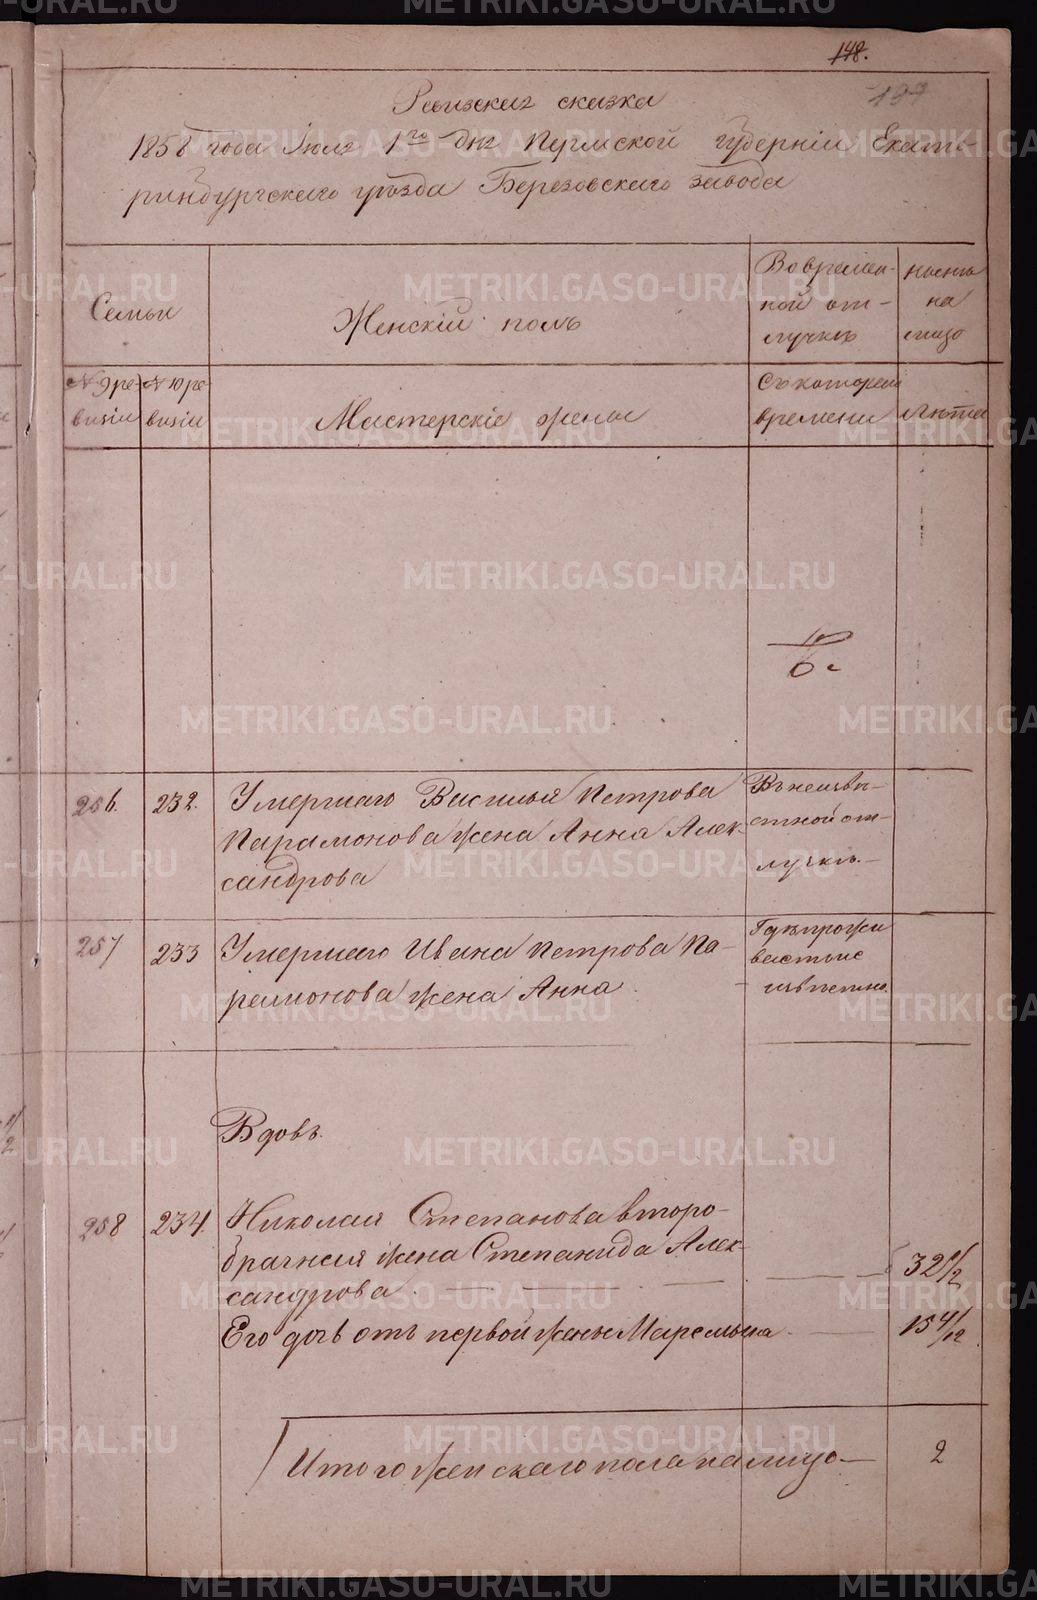 148.
Ревизская сказка
1858 года Июля 1го дня Пермской губерніи Екате-
ринбургскаго уѣзда Березовскаго завода
Семьи
Женскій полъ
Во времен-
ной от-
лучкѣ
на
лицо
№ 9 ре-
визіи
№ 10 ре-
визіи
Мастерскіе жены
Съ котораго
времени
Лѣта
256.
232.
Умершаго Василья Петрова
Парамонова жена Анна Алек-
сандрова
Въ неизвѣ-
стной от-
лучкѣ.
257
233
Умершаго Ивана Петрова Па-
рамонова жена Анна
Гдѣ прожи
извѣстно.
Вдовъ.
258
234.
Николая Степанова второ-
брачная жена Степанида Алек-
сандрова
32 1/2
Его дочь отъ первой жены Маремьяна
15 4/12
Итого женскаго пола на лицо
2
METRIKI.GASO-URAL.RU